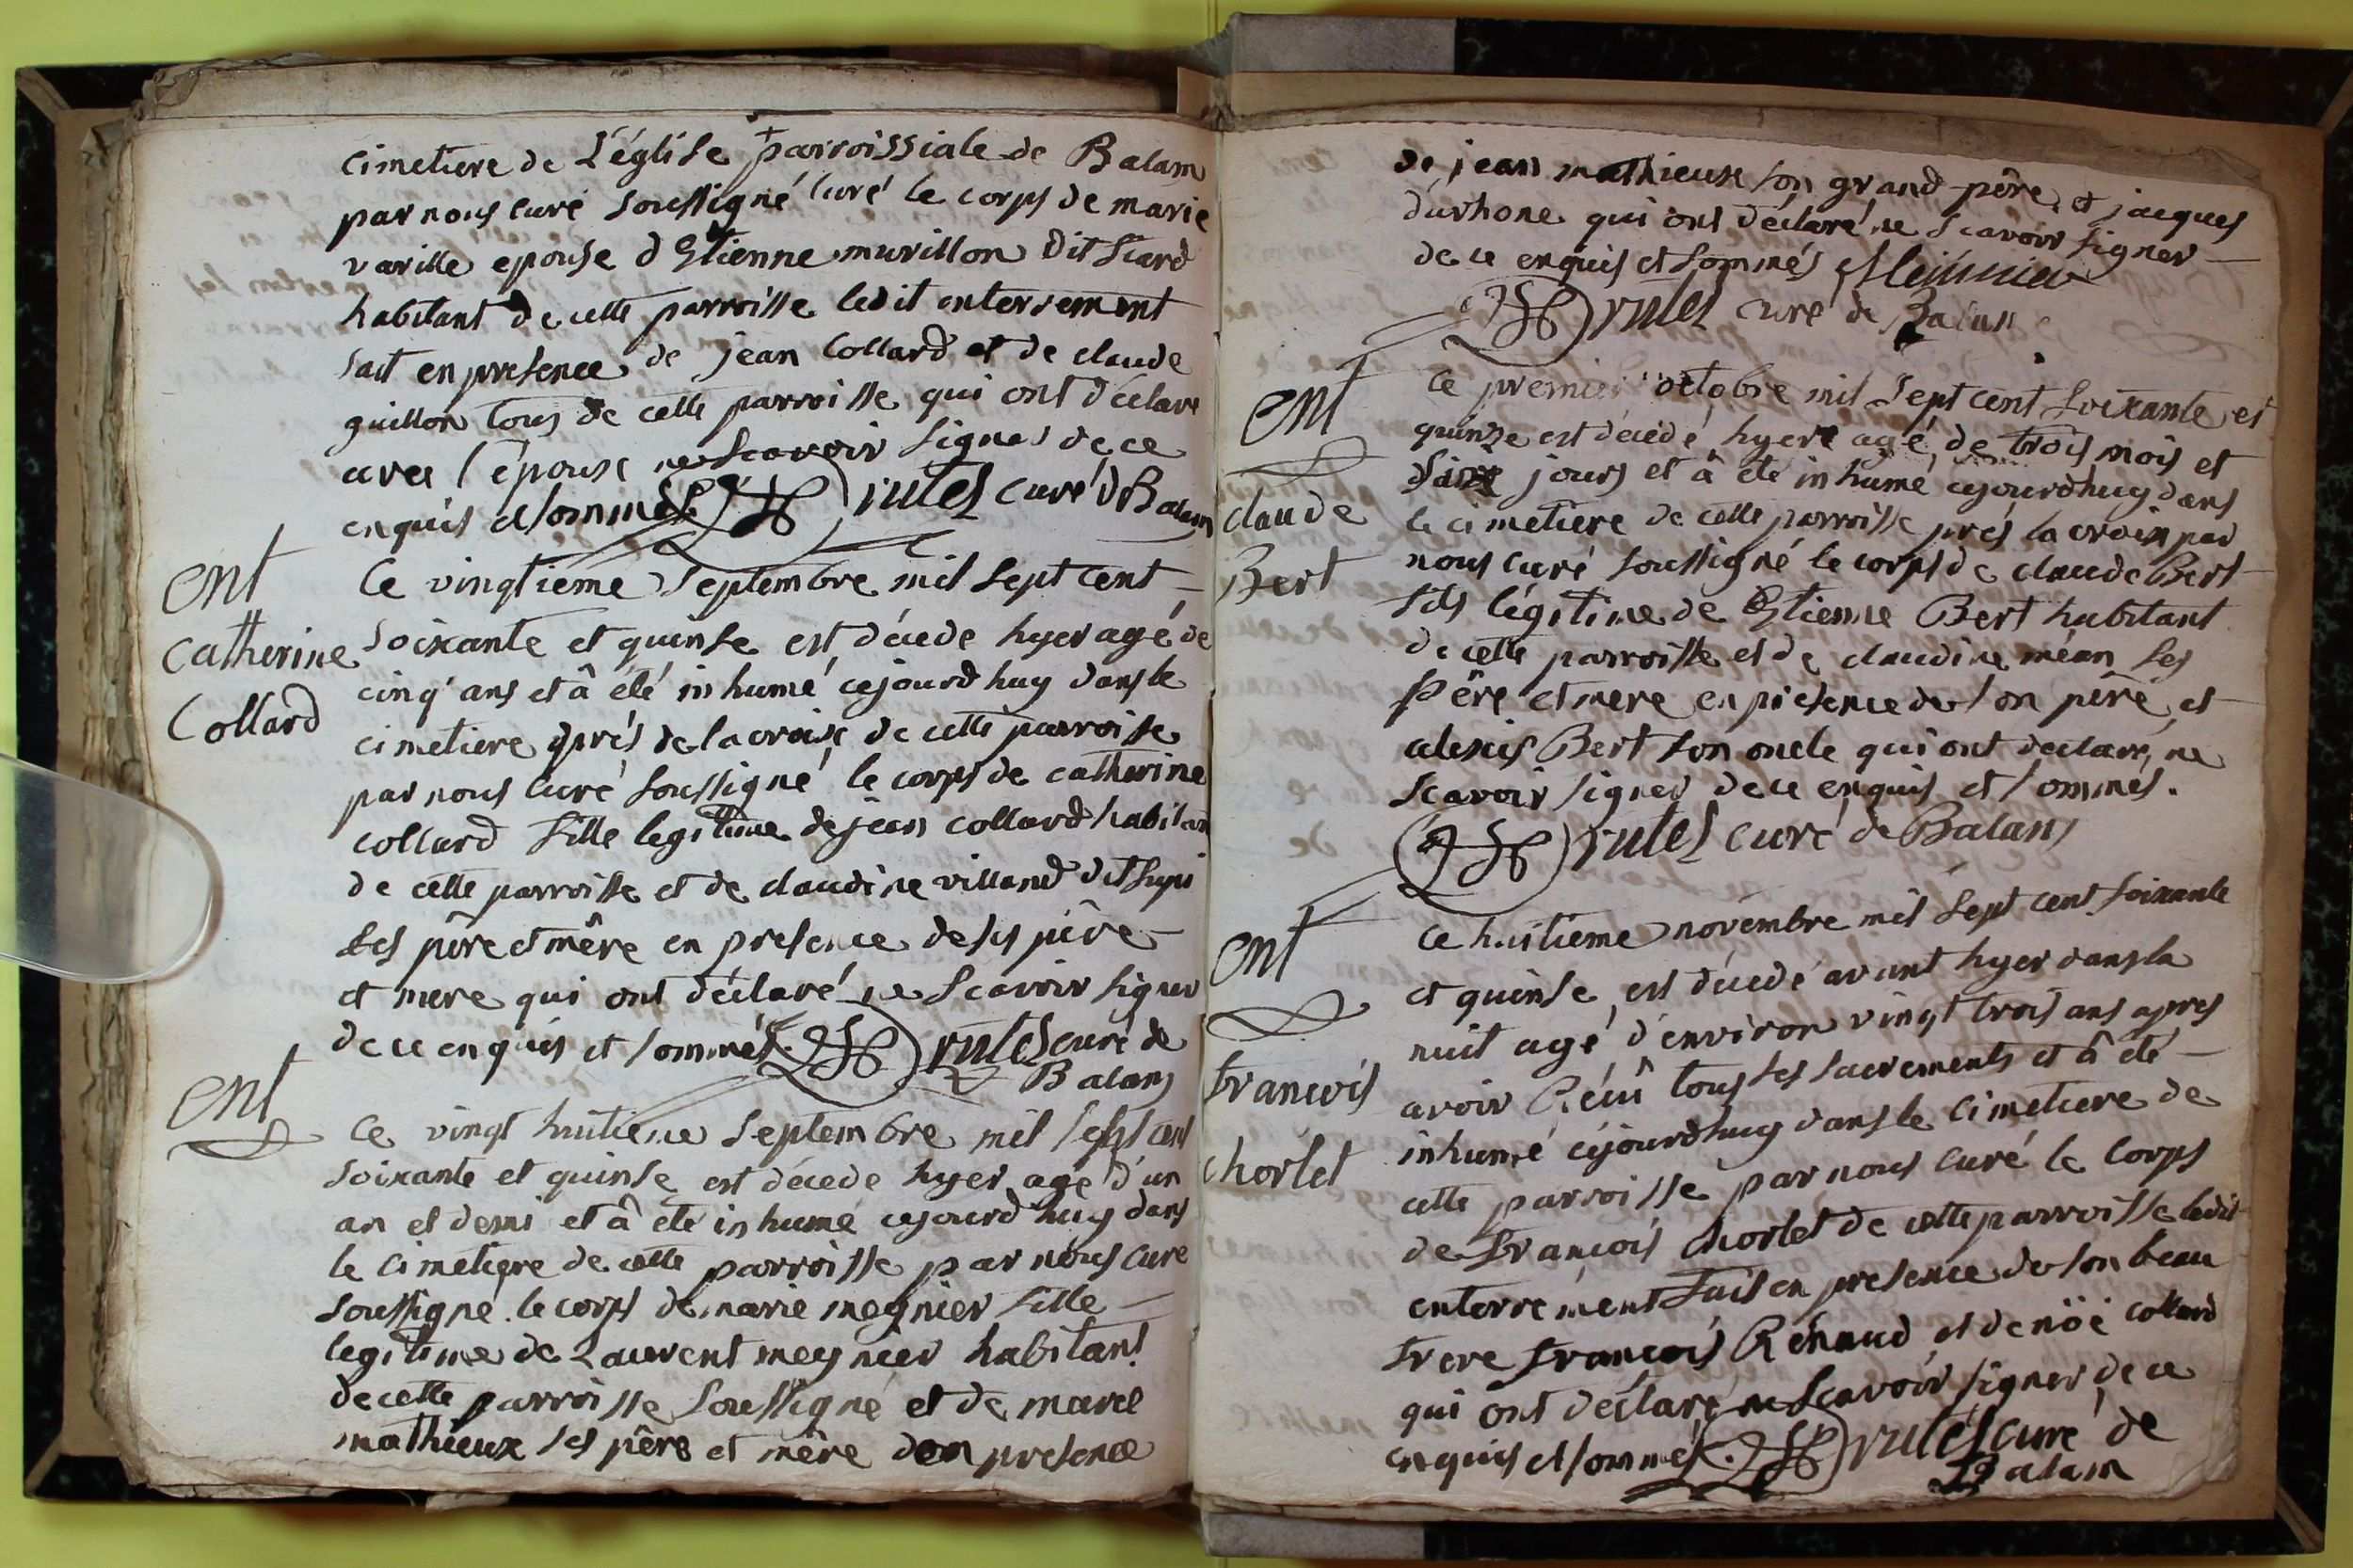 cimetiere de L'église parroissiale de Balam
par nous curé soussigné curé le corps de marie
varille epouse d'Etienne murillon dit
habitant de cette parroisse ledit enterrement
fait en presence de jean Collard et de claude
guillon tous de cette parroisse qui ont déclare
avec l'épouse ne scavoir signer de ce
enquis et sommés rutes curé d Balam
ent
Catherine
Collard
Ce vingtieme septembre mil sept cent
soixante et quinse est décede hyer agé de
cinq ans et â été inhumé cejourd huy dans le
cimetiere près de la croix de cette parroisse
par nous curé soussigné le corps de catherine
collard fille legitime de jean collard habitan
de cette parroisse et de claudine villand dit
ses pêre et mêre en presence de ses pêre
et mere qui ont déclaré ne scavoir signer
de ce enquis et sommés rutes curé de
Balam
ent
Ce vingt huitieme septembre mil sept cent
soixante et quinse est décede hyer agé d'un
an et demi et â été inhumé cejourd huy dans
le cimetiere de cette parroisse par nous curé
soussigné le corps de marie meynier fille
legitime de Laurent meynier habitant
de cette parroisse soussigné et de marie
mathieux ses pêre et mêre en presence
de jean mathieux son grand-pêre et jacques
durhone qui ont déclaré ne scavoir signer
de ce enquis et sommés Meinnier
rutes curé de Balan
ent
claude
Bert
Ce premier octobre mil sept cent soixante et
quinze est décédé hyer agé de trois mois et
jours et â été inhumé cejourdhuy dans
le cimetiere de cette parroisse près la croix par
nous curé soussigné le corps de claude Bert
fils légitime de Etienne Bert habitant
de cette parroisse et de claudine méan ses
Pêre et mere en presence de son pêre et
alexis Bert son oncle qui ont declaré ne
scavoir signer de ce enquis et sommés.
rutes curé de Balans
ent
francois
chorlet
Ce huitieme novembre mil sept cent soixante
et quinse est décedé avant hyer dans la
nuit agé d'environ vingt trois ans apres
avoir Réçû tous ses sacrements et â été
inhumé céjourdhuy dans le cimetiere de
cette parroisse par nous curé le corps
de francois chorlet de cette parroisse ledit
enterrement fait en presence de son beau
frere francois Rénaud et de nöé collard
qui ont déclaré ne scavoir signer de ce
enquis et sommés. rutes curé de
Balam